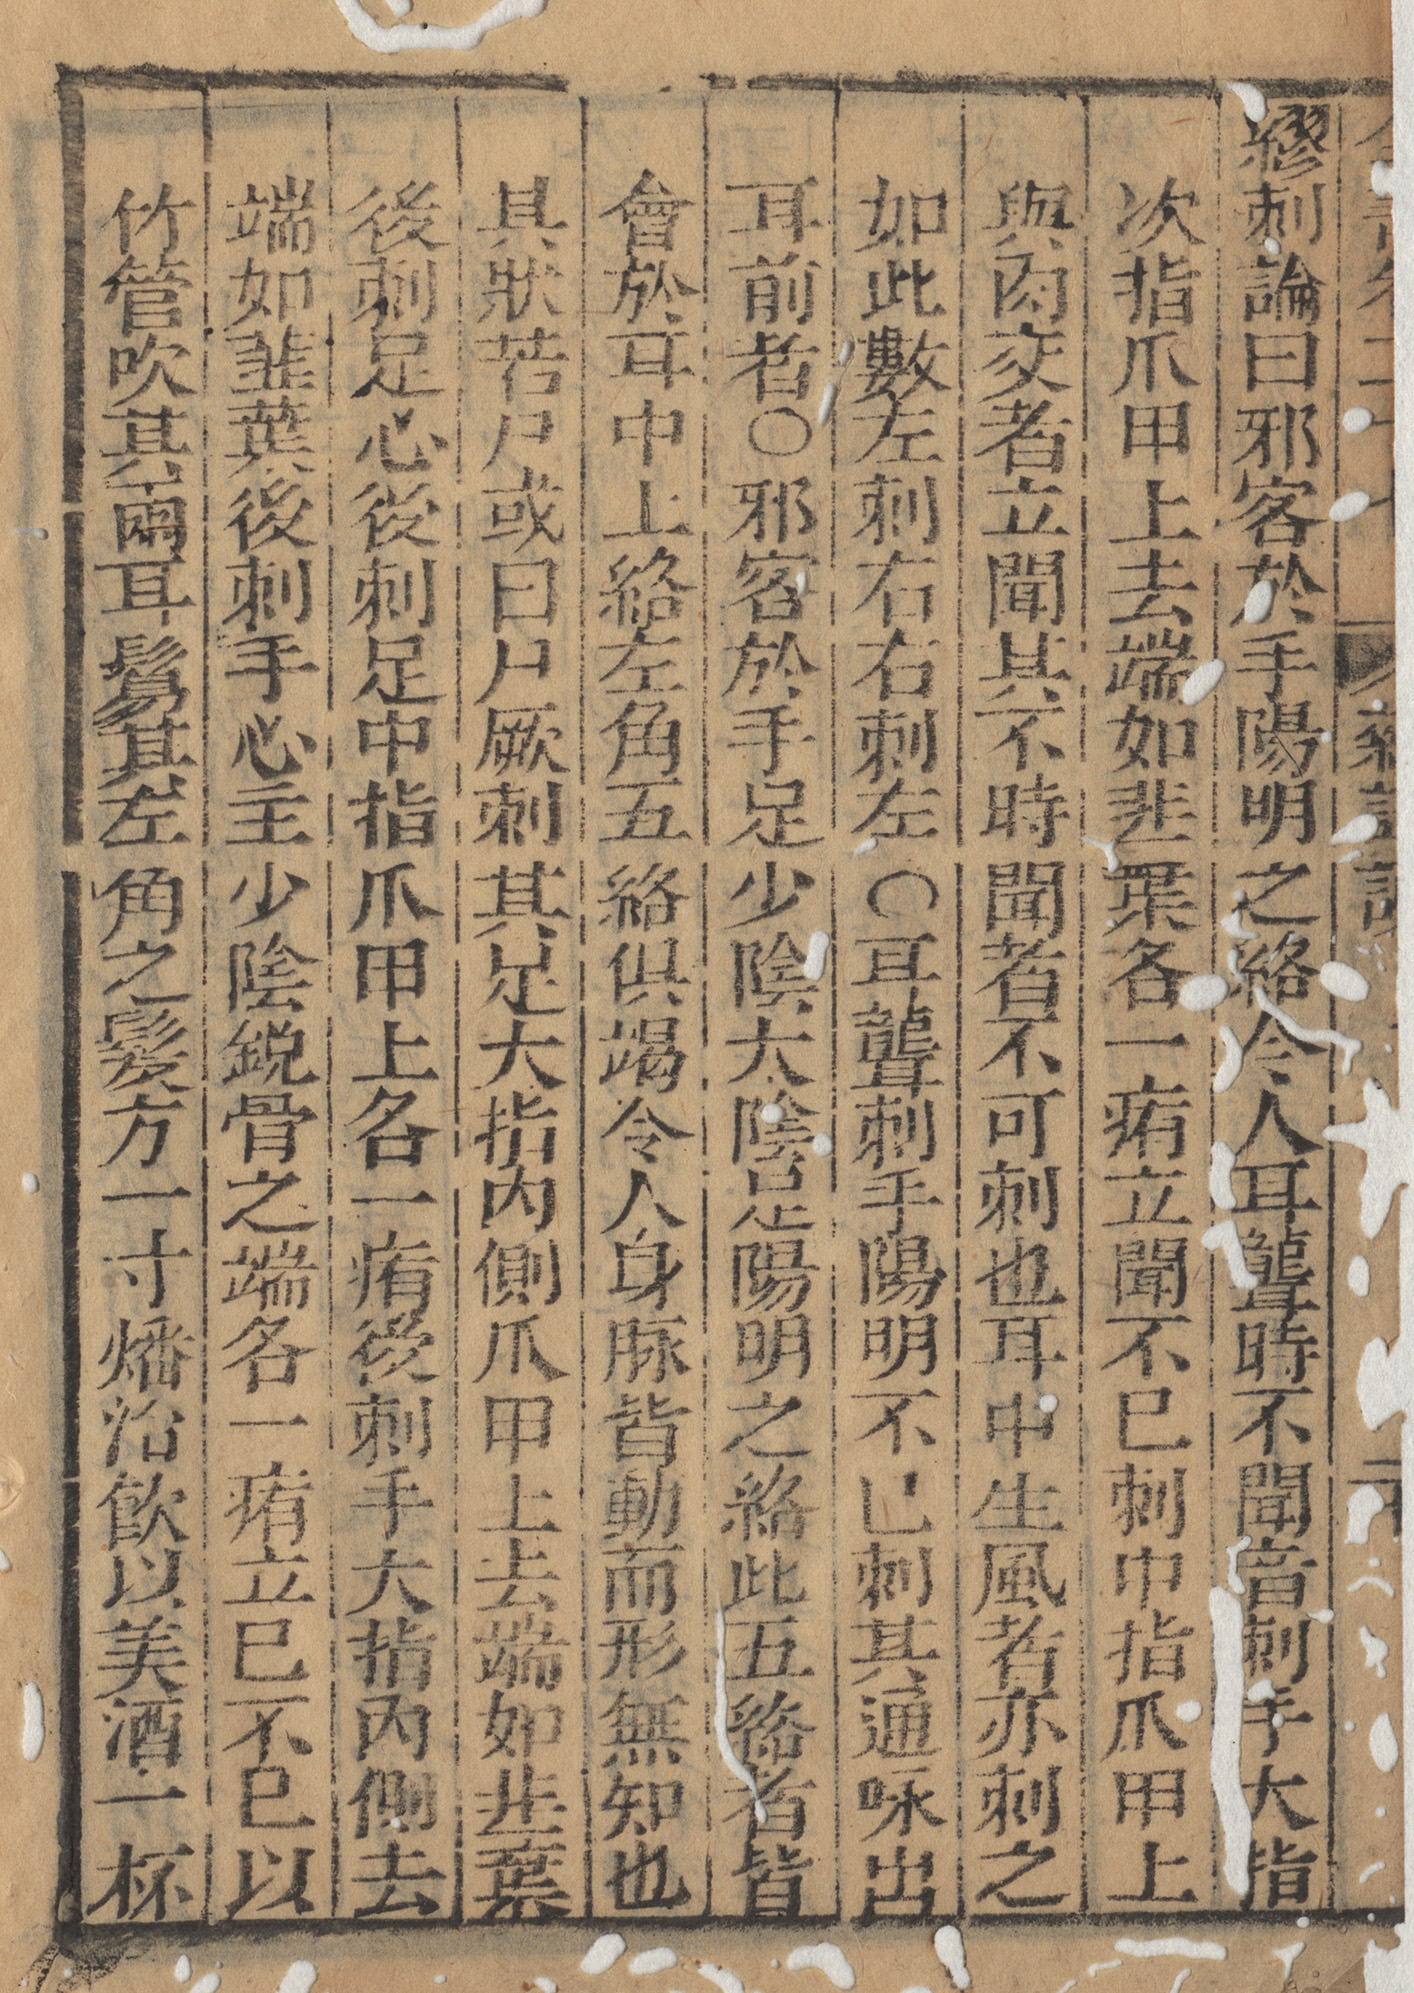 繆刺論曰邪客於手陽明之絡令人耳聾時不聞音刺手大指
次指爪甲上去端如韭葉各一痏立聞不已刺中指爪甲上
與肉交者立聞其不時聞者不可刺也耳中生風者亦刺之
如此數左刺右右刺左〇耳聾刺手陽明不已刺其通脉出
耳前者〇邪客於手足少陰太陰足陽明之絡此五絡者皆
會於耳中上絡左角五絡俱竭令人身脈皆動而形無知也
其狀若尸或曰尸厥刺其足大指内側爪甲上去端如韭葉
後刺足心後刺足中指爪甲上各一痏後刺手大指内側去
端如韭葉後刺手心主少陰銳骨之端各一痏立已不已以
竹管吹其兩耳鬄其左角之髮方一寸燔治飲以美酒一杯